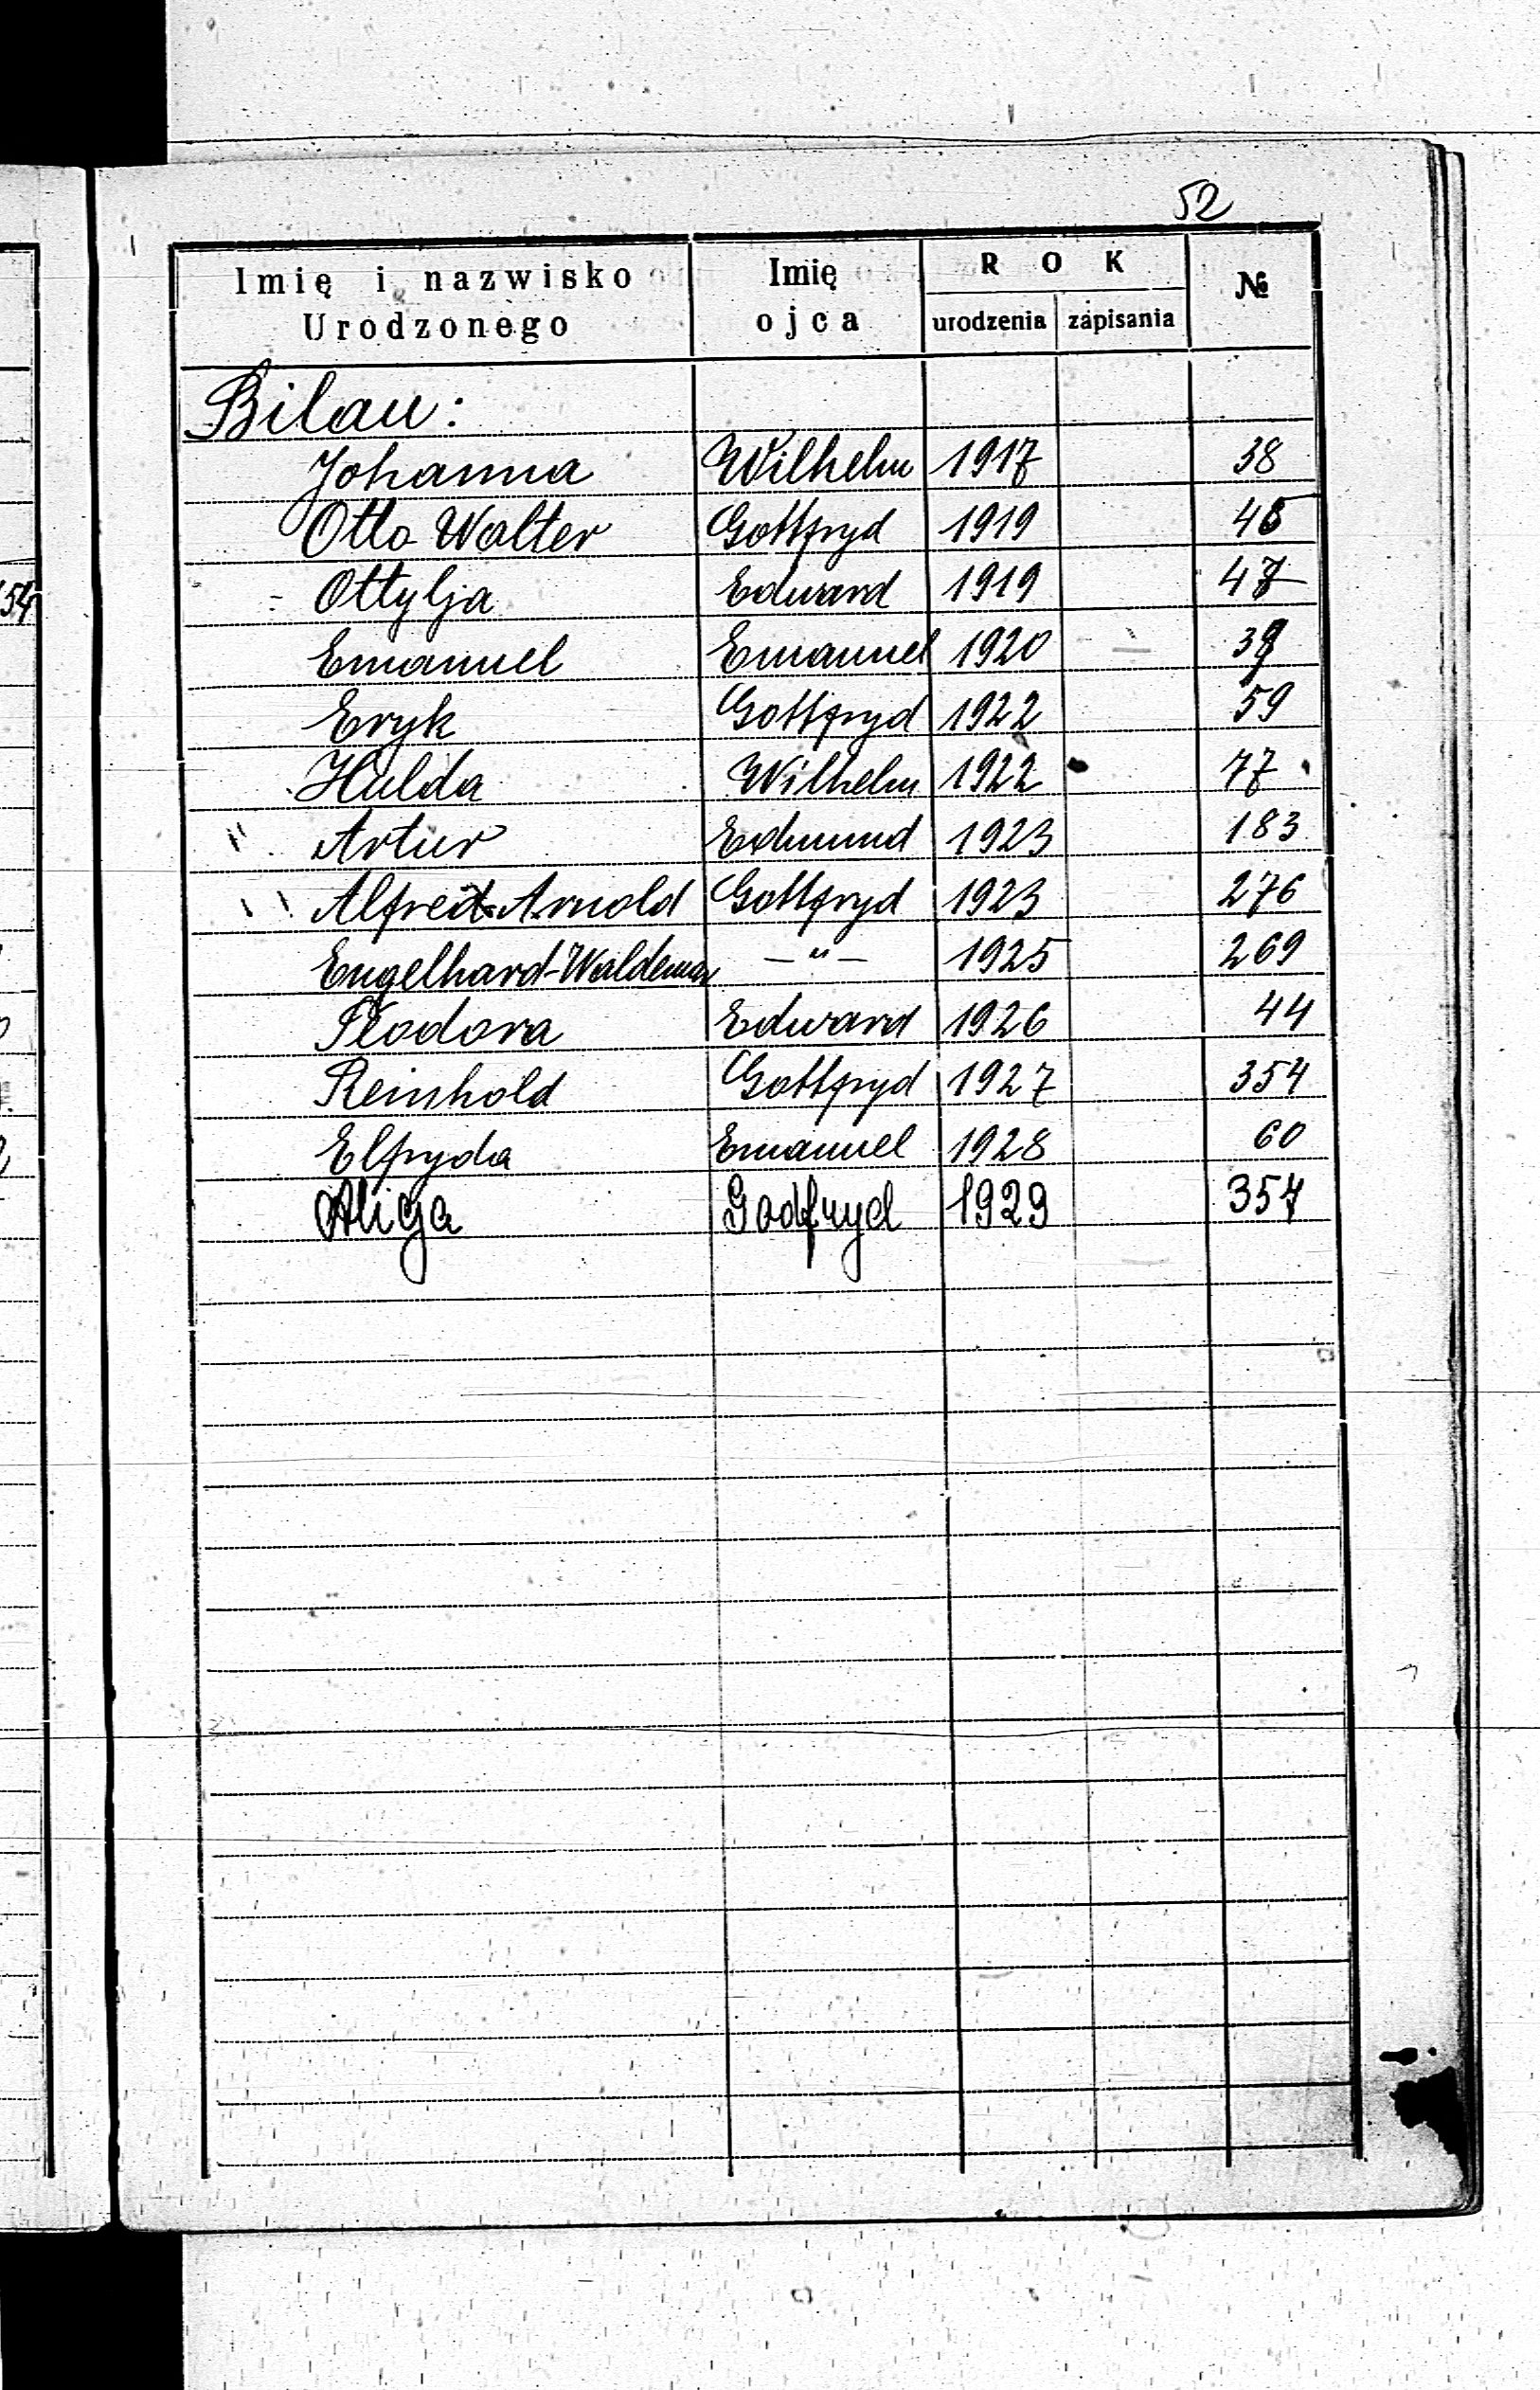 52
Imię i nazwisko Urodzonego Imię ojca ROK urodzenia zapisania №
Bilau:
Johanna Wilhelm 1917 38
Otto Walter Gottfryd 1919 46
54
Ottylja Edward 1919 47
Emanuel Emanuel 1920 39
Eryk Gottfryd 1922 59
Hulda Wilhelm 1922 77
" Artur Edmund 1923 183
Alfred-Arnold Gottfryd 1923 276
Engelhard-Waldemar —"— 1925 269
Teodora Edward 1926 44
Reinhold Gottfryd 1927 354
Elfryda Emanuel 1928 60
Alicja Godfryd 1929 354